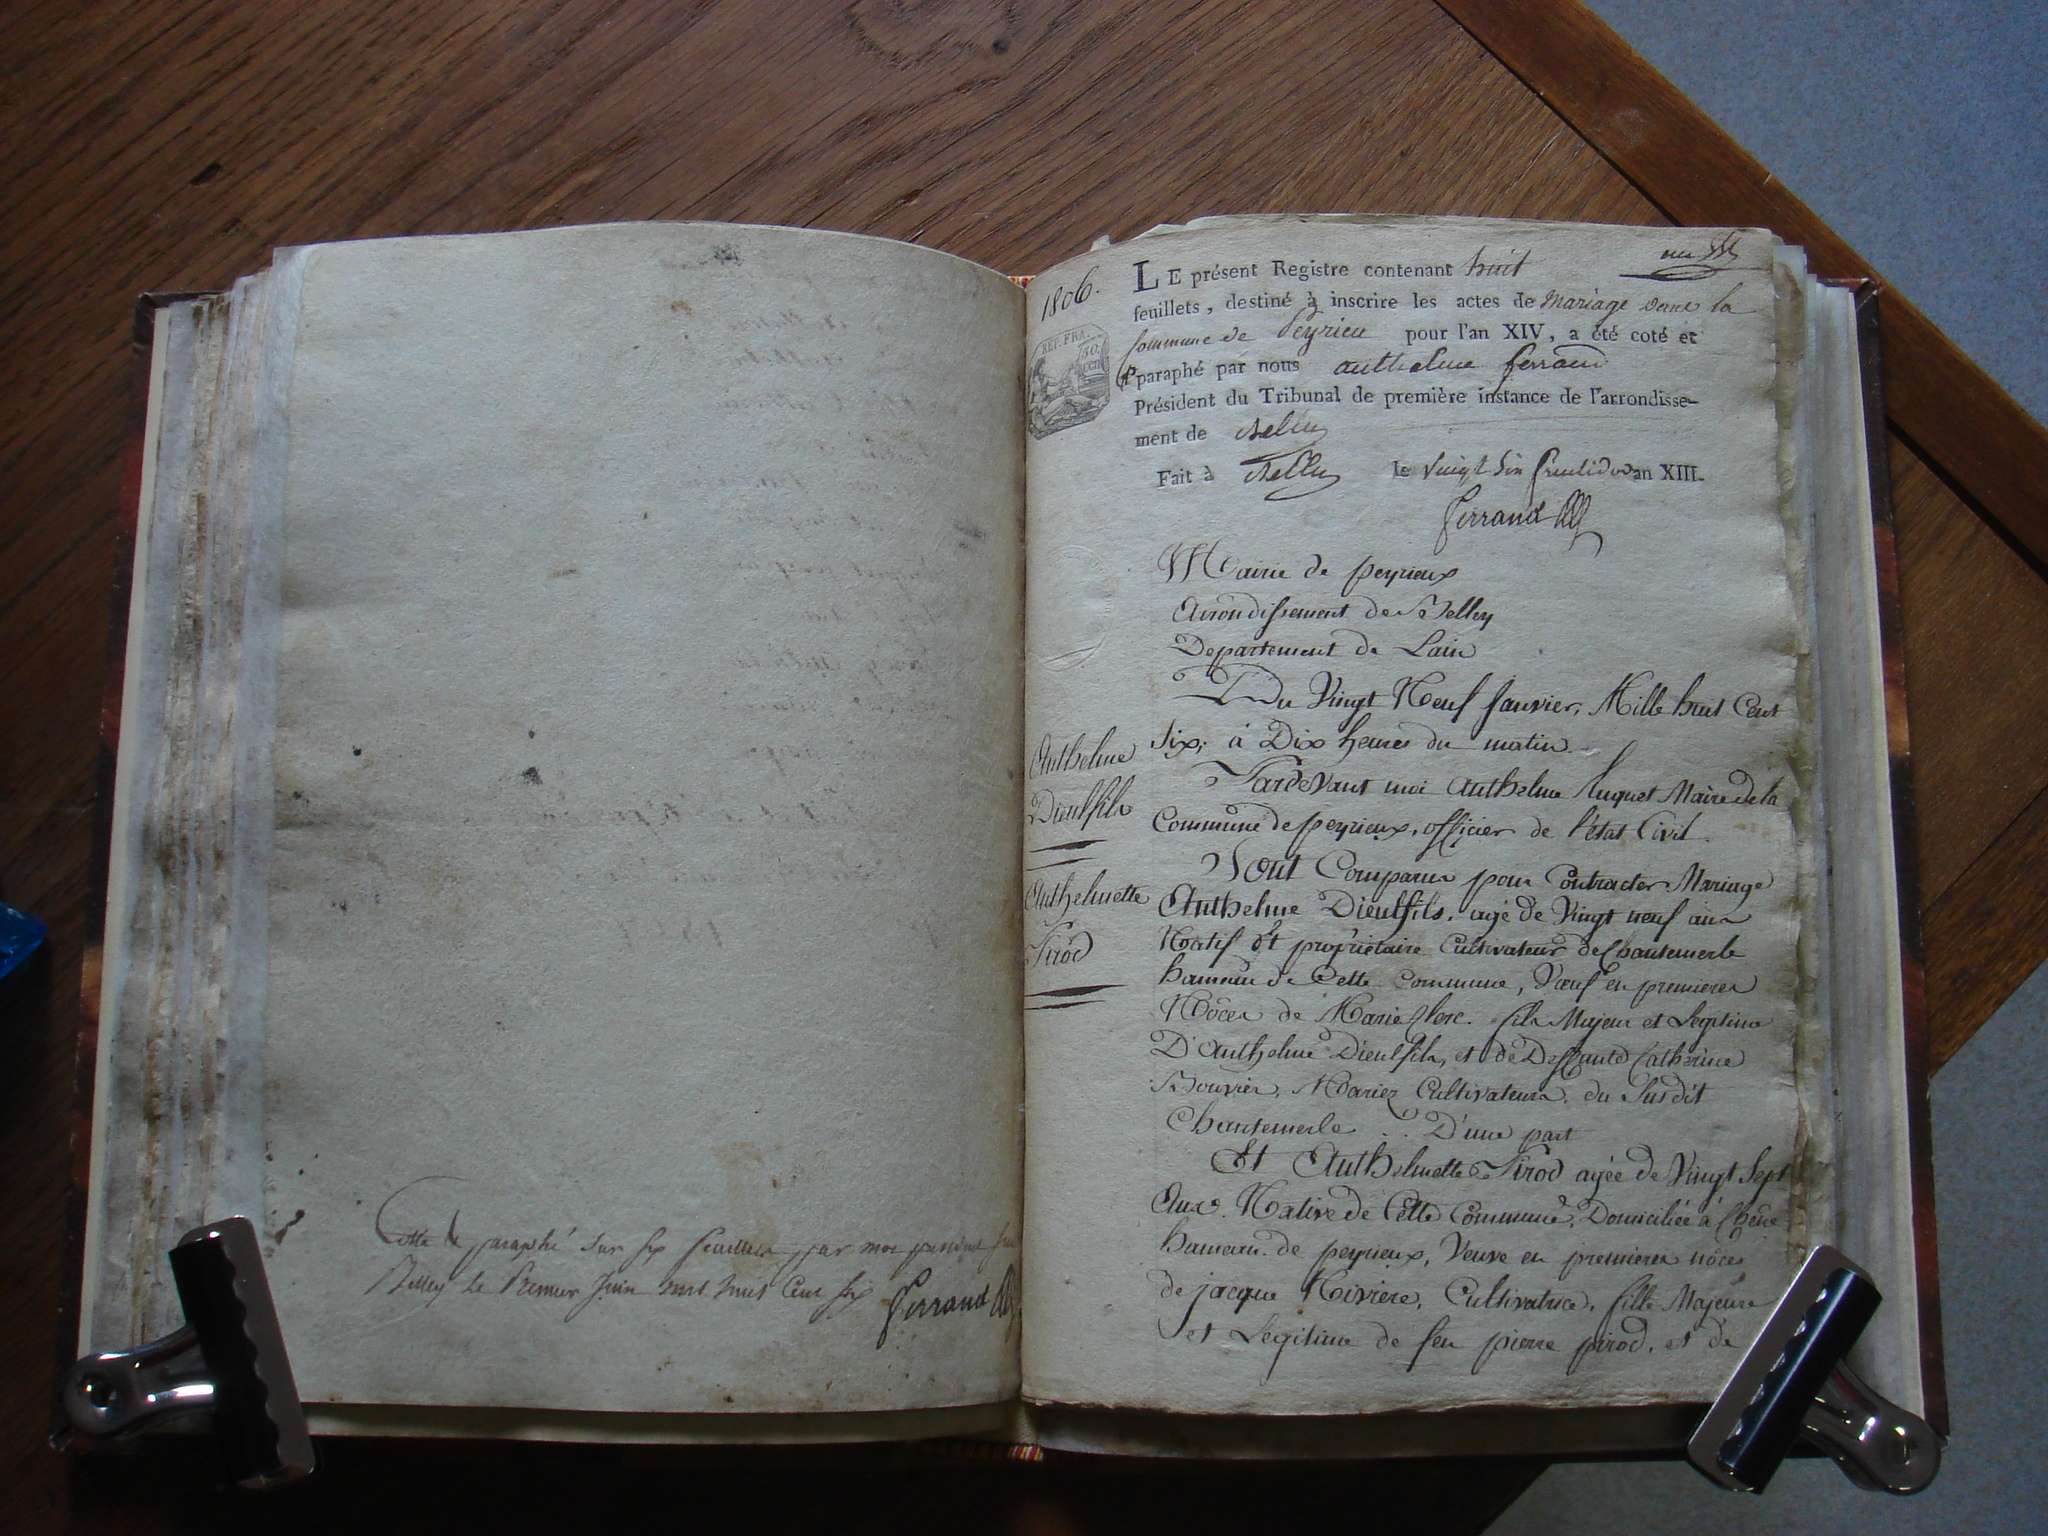 Cotté & paraphé sur six feuillets par moi président
Belley le Premier Juin mil huit Cent six
Ferrand
1806.
REP. FRA.
50.
CEN
LE présent Registre contenant huit
feuillets, destiné à inscrire les actes de Mariage dans la
Commune de Peyrieu pour l'an XIV, a été coté et
paraphé par nous anthelme ferrand
Président du Tribunal de première instance de l'arrondisse-
ment de Belley
Fait à Belley le vingt six fructidor an XIII.
Ferrand
Mairie de peyrieux
Arrondissement de Belley
Departement de Lain
Du Vingt Neuf Janvier, Mille huit Cent
six; à Dix heures du matin
Anthelme
Dieulfils
Anthelmette
Pirod
Pardevant moi Anthelme huguet Maire de la
Commune de peyrieux, officier de l'état Civil.
Sont Comparus pour Contracter Mariage
Anthelme Dieulfils, agé de Vingt neuf ans
Natif Et propriétaire Cultivateur de Chantemerle
hameau de Cette commune, Vœuf en premieres
Nôces de Marie Clerc. fils Majeur et Legitime
D'Anthelme Dieulfils, et de Deffunte Catherine
Bouvier, Mariez Cultivateurs du Susdit
Chantemerle .. D'une part
Et Anthelmette Pirod agée de Vingt Sept
Ans. Native de Cette Commune, Domiciliée à Chêne
hameau de peyrieux, Veuve en premieres nôces
de jacque Riviere, Cultivatrice, fille Majeure
et Legitime de feu pierre pirod, et de